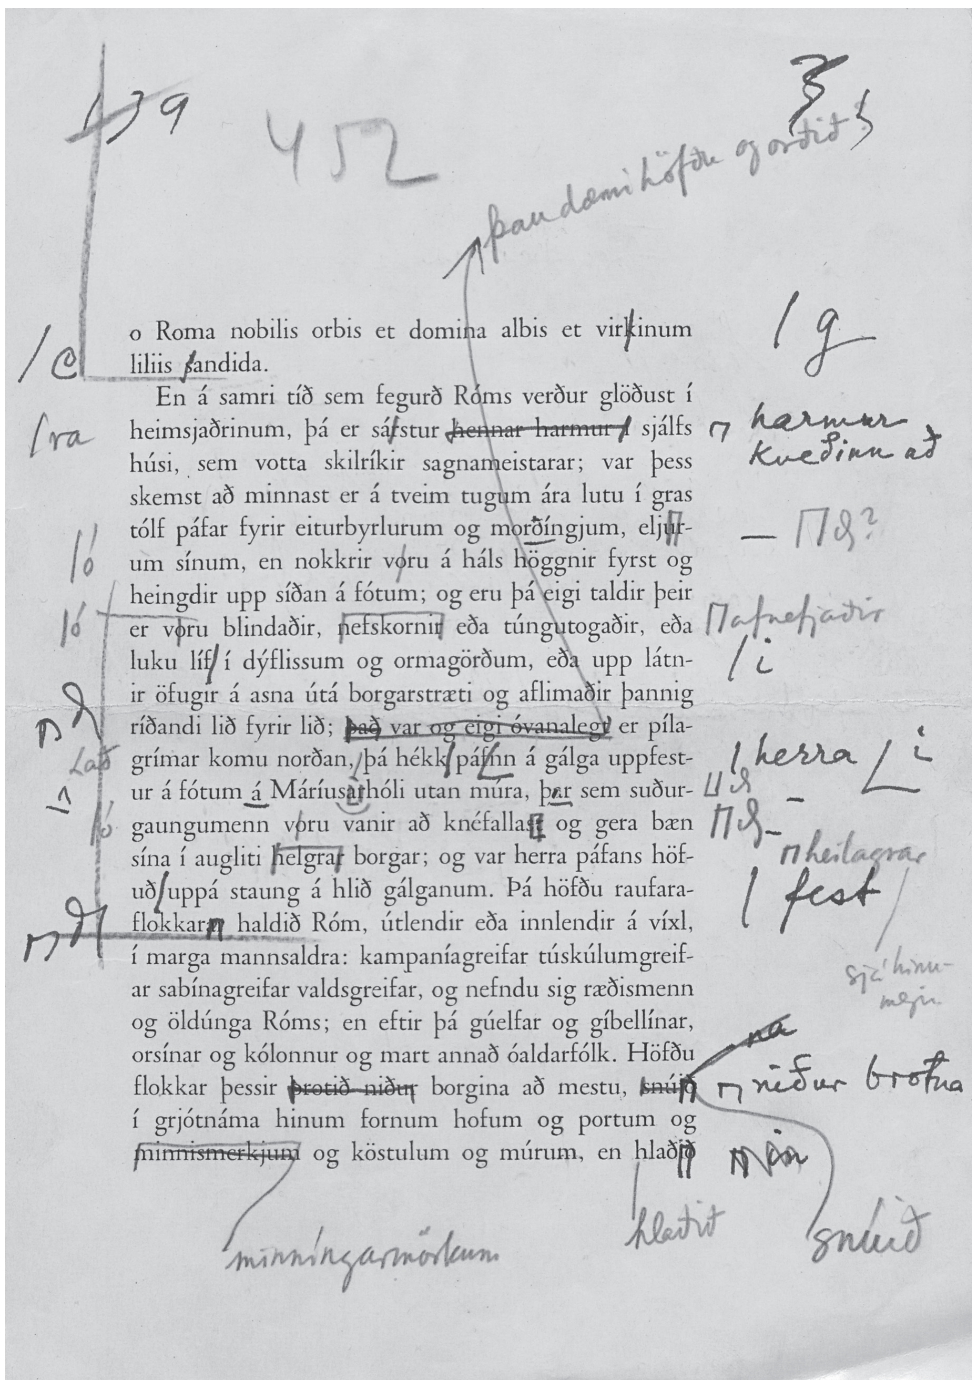 139
452
3
þau dæmi höfðu og orðið
o Roma nobilis orbis et domina albis et virkinum
/ g
/ c
liliis sandida.
En á samri tíð sem fegurð Róms verður glöðust í
/ra
heimsjaðrinum, þá er sáfstur hennar harmur sjálfs
harmur
kveðinn að
húsi, sem votta skilríkir sagnameistarar; var þess
skemst að minnast er á tveim tugum ára lutu í gras
tólf páfar fyrir eiturbyrlurum og morðíngjum, eljur-
/ó
um sínum, en nokkrir voru á háls höggnir fyrst og
heingdir upp síðan á fótum; og eru þá eigi taldir þeir
/ó
er voru blindaðir, nefskornir eða túngutogaðir, eða
afnefjaðir
luku líf í dýflissum og ormagörðum, eða upp látn-
/ i
ir öfugir á asna útá borgarstræti og aflimaðir þannig
ríðandi lið fyrir lið; það var og eigi óvanalegt er píla-
að
grímar komu norðan, þá hékk páfinn á gálga uppfest-
herra
i
ur á fótum á Máríusarhóli utan múra, þar sem suður-
ó
gaungumenn voru vanir að knéfallast og gera bæn
sína í augliti helgrar borgar; og var herra páfans höf-
heilagrar
uð uppá staung á hlið gálganum. Þá höfðu raufara-
fest
flokkarn haldið Róm, útlendir eða innlendir á víxl,
í marga mannsaldra: kampaníagreifar túskúlumgreif-
sjá hinu-
megin
ar sabínagreifar valdsgreifar, og nefndu sig ræðismenn
og öldúnga Róms; en eftir þá gúelfar og gíbellínar,
orsínar og kólonnur og mart annað óaldarfólk. Höfðu
na
flokkar þessir brotið niður borgina að mestu, snúið
niður brotna
í grjótnáma hinum fornum hofum og portum og
minnismerkjum og köstulum og múrum, en hlaðið
minníngarmörkum
hlaðið
snúið